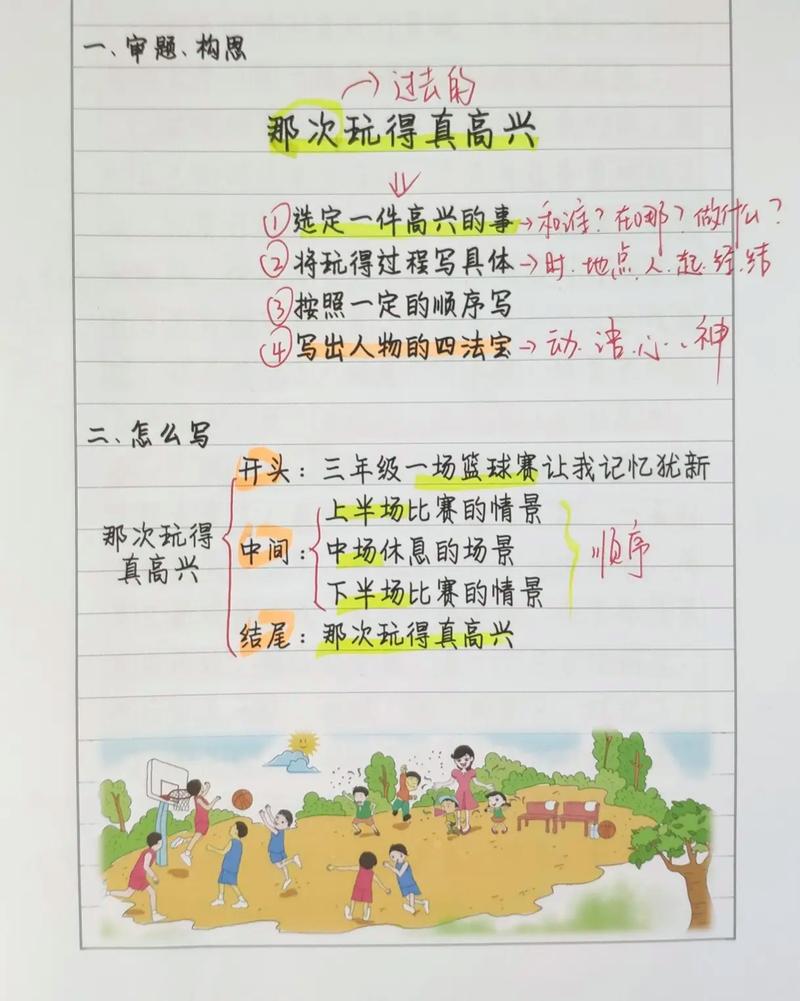 一、审题、构思
→过去的
那次玩得真高兴
①选定一件高兴的事→和谁?在哪?做什么?
②将玩得过程写具体→时.地点.人.起.经.结
③按照一定的顺序写
④写出人物的四法宝→动.语.心.神
二、怎么写
开头:三年级一场篮球赛让我记忆犹新
那次玩得真高兴
中间:
上半场比赛的情景
中场休息的场景
下半场比赛的情景
顺序
结尾:那次玩得真高兴